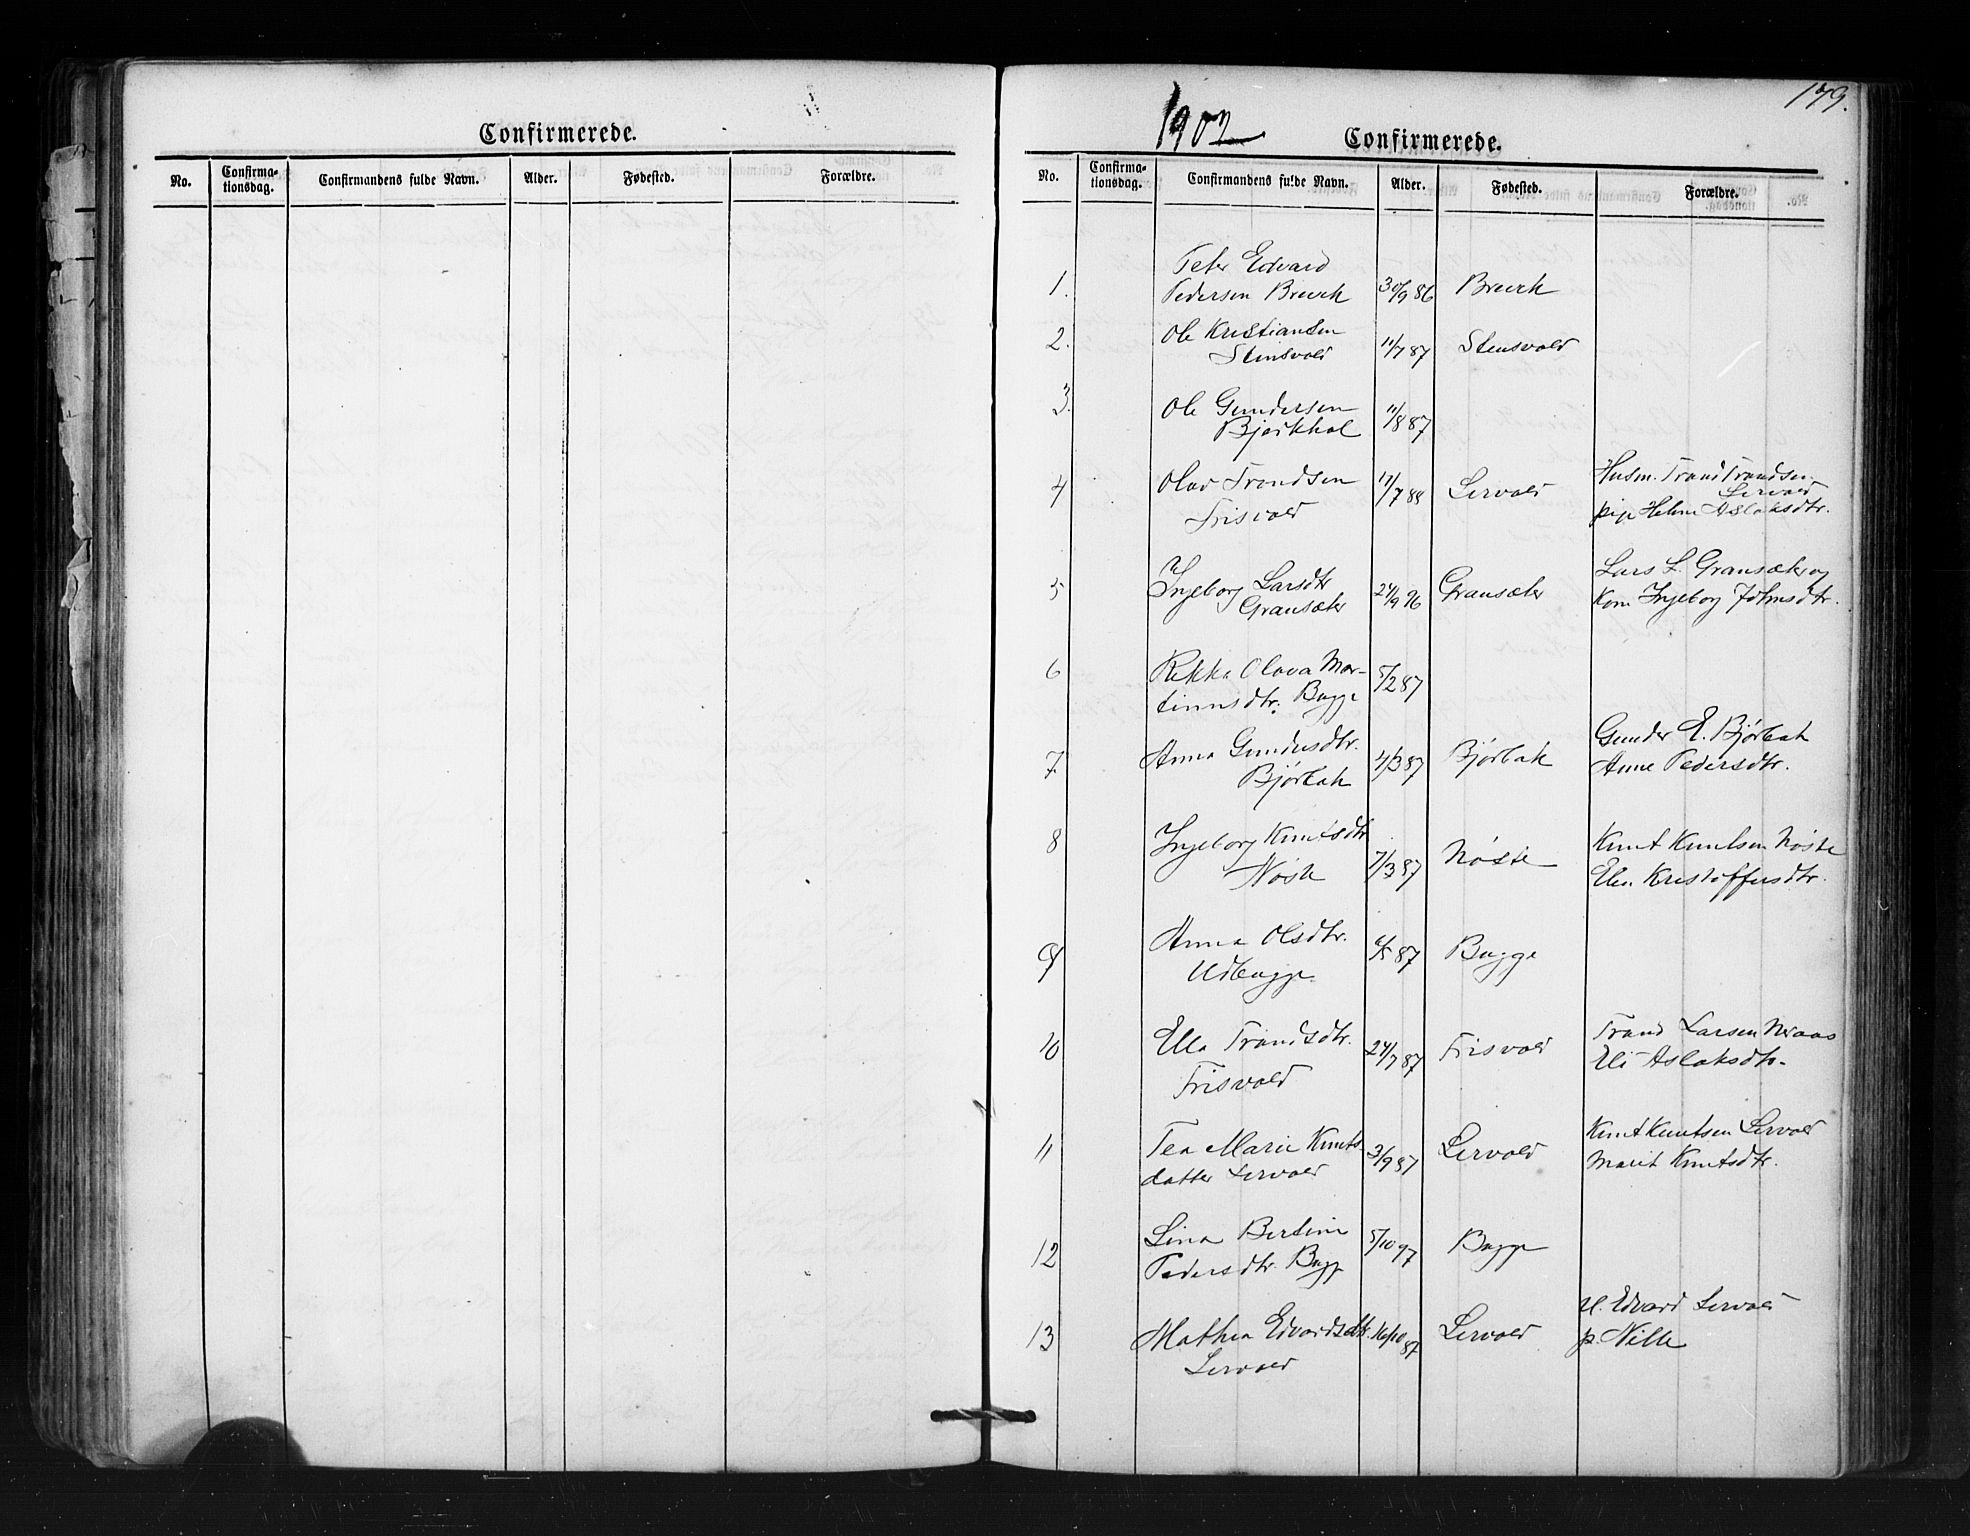 Confirmerede.
No.
Confirma-
tionsdag.
Confirmandens fulde Navn.
Alder.
Fødested.
Forældre.
179.
1902
Confirmerede.
No.
Confirma-
tionsdag.
Confirmandens fulde Navn.
Alder.
Fødested.
Forældre.
1. Peter Edvard
Pedersen Brevik 30/9 86 Brevik
2. Ole Kristiansen
Stensvold 11/7 87 Stensvold
3. Ole Gundersen
Bjørkhol 11/8 87
4 Olav Trondsen
Frisvold 17/7 88 Lervold
Husm. Trond Trondsen
Lervold
pige Helene Aslaksdtr.
5 Ingeborg Larsdtr
Gransæter 24/9 96 Gransæter
Lars L. Gransæter og
Kone Ingeborg Johnsdtr.
6 Rikka Olava Mar-
tinusdtr. Bugge 5/2 87
7 Anna Gundersdtr.
Bjørbak 4/3 87 Bjørbak
Gunder E. Bjørbak
Anne Pedersdtr.
8 Ingeborg Knutsdtr
Nøste 7/3 87 Nøste
Knut Knutsen Nøste
Elen Kristoffersdtr.
9 Anna Olsdtr.
Udbugge 6/5 87 Bugge
10 Ella Trondsdtr.
Frisvold 24/7 87 Frisvold
Trond Larsen Neraas
Eli Aslaksdtr.
11 Tea Marie Knuts-
datter Lervold 3/9 87 Lervold
Knut Knutsen Lervold
Marit Knutsdtr.
12 Lina Bertine
Pedersdtr. Bugge 5/10 97 Bugge
13 Mathea Edvardsdtr.
Lervold 16/10 87 Lervold
H. Edvard Lervold
p. Nille